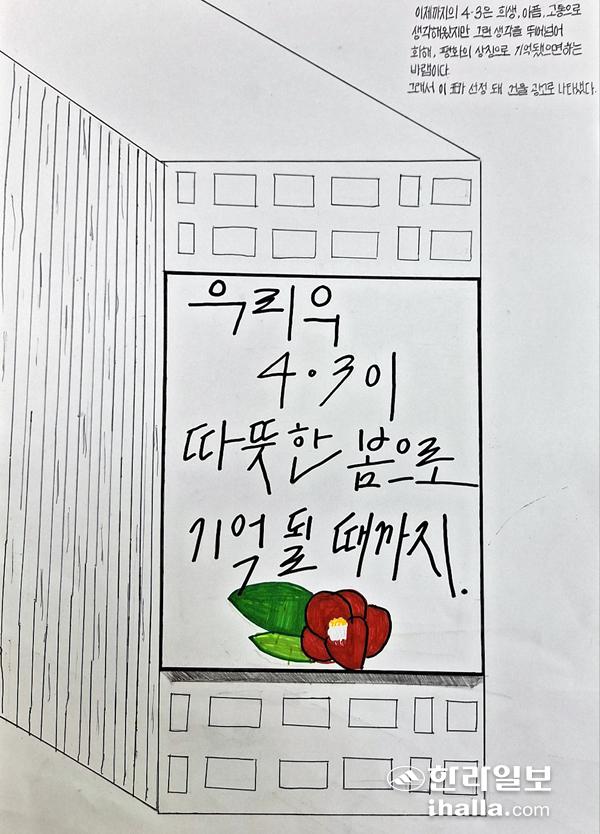 이제까지의 4·3은 희생, 아픔, 고통으로
생각해왔지만 그런 생각을 뛰어넘어
화해, 평화의 상징으로 기억됐으면하는
바램이다.
그래서 이 선정 돼 건물 광고로 나타냈다.
우리의
4·3이
따뜻한 봄으로
기억 될 때까지.
한라일보
ihalla.com